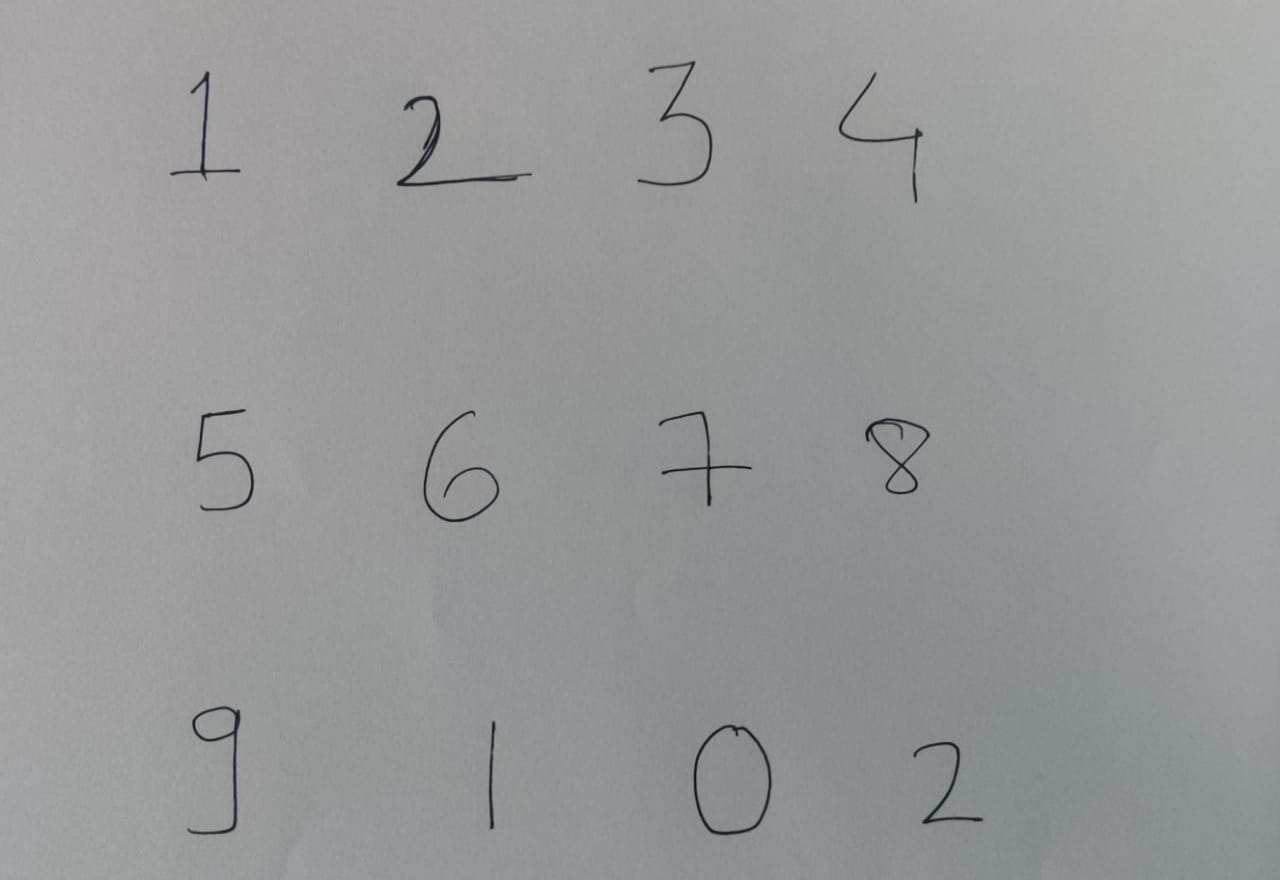 1 2 3 4
5 6 7 8
9 1 0 2